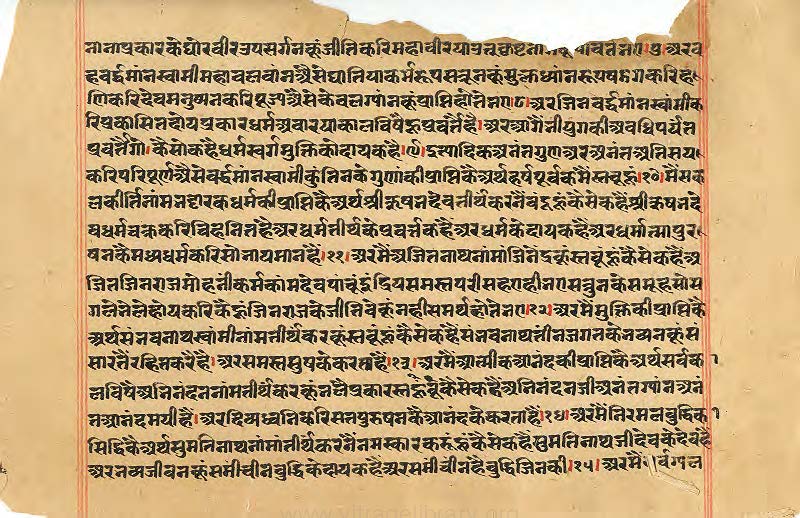 नानाप्रकारकेघोरवीरउपसर्गनकूंजीतिकरिमहावीर
हवर्द्धमांनस्वामीमहाबलवांनऔसेघातियाकर्मरूपसत्रुनकूंसुक्लध्यांनरूपषडगकरिह
णिकरिदेवमनुष्यनकरिपूज्यऔसेकेवलग्यांनकूंप्राप्तिहोतेभए।८।अरजिनवर्द्धमांनस्वामीक
रिप्रकासितदोयप्रकारधर्मअबारयाकालविषैहूप्रवर्तैहै।अरआगेंभीयुगकीअवधिपर्यंत
प्रवर्तैगो।कैसोकहैधर्मस्वर्गमुक्तिकोदायकहै।९।इत्यादिकअनंतगुणअरअनंतअतिसय
करिपरिपूर्णऔसेवर्द्धमांनस्वामीकुंतिनकेगुणांकीप्राप्तिकैअर्थहर्षपूर्वकमैंस्तवूंहूं।१०।मैंसक
लकीर्त्तिनांमभट्टारकधर्मकीप्राप्तिकैअर्थश्रीऋषभदेवतीर्थंकरनैंवंदूंहूंकैसेकहैंश्रीऋषभदे
वधर्मचक्रकरिचिह्नितहैंअरधर्मतीर्थकेप्रवर्त्तकहैंअरधर्मकेदायकहैंअरधर्मात्मापुर
षनकैमध्यधर्मकरिसोभायमांनहैं।११।अरमैंअजितनाथनांमांजिनेंद्रकूंस्तवूंहूंकैसेकहैंअ
जितजिनराजमोहनीकर्मकांमदेवपांचूंइंद्रियसमस्तपरीसहएहीभएसत्रुतिनकेसमूहसोस
गलेभेलेहोयकरिकैहूजिनराजकेजीतिवेकूंनहीसमर्थहोतेभए।१२।अरमैंमुक्तिकीप्राप्तिकै
अर्थसंभवनाथस्वांमीनांमांतीर्थंकरकूंस्तवूंहूंकैसेकहैंसंभवनाथतीनजगतकेभव्यनकूंसं
सारतैंरहितकरैहैं।अरसमस्तसुषकेकरताहैं।१३।अरमैंआत्मीकआनंदकीप्राप्तिकैअर्थसर्वका
लविषैअभिनंदननांमतीर्थंकरकूंभलैप्रकारस्तवूंहूंकैसेकहैंअभिनंदनजीअनंतग्यांनअनं
तआनंदमयीहैं।अरदिव्यध्वनिकरिसतपुरुषनकैआनंदकेकरताहैं।१४।अरमैंनिरमलबुद्धिकी
सिद्धिकैअर्थसुमतिनाथनांमांतीर्थंकरनैंनमस्कारकरूंहूंकैसेकहैंसुमतिनाथजीदेवकेदेवहैं
अरभव्यजीवनकूंसमीचीनबुद्धिकेदायकहैंअरसमीचीनहैबुद्धिजिनकी।१५।अरमैं